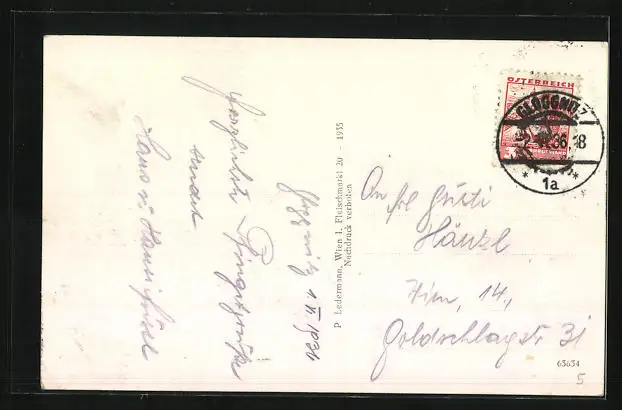 Gloggnitz 1.VI.1936
Herzlichste Pfingstgrüße
sendet
Hans u. Hanni
P. Ledermann, Wien I, Fleischmarkt 20 - 1935
Nachdruck verboten
ÖSTERREICH
GLOGGNITZ
36 18
* 1a *
An Frl. Gusti
Hänzl
Wien, 14.,
Goldschlagstr 31
63634
5